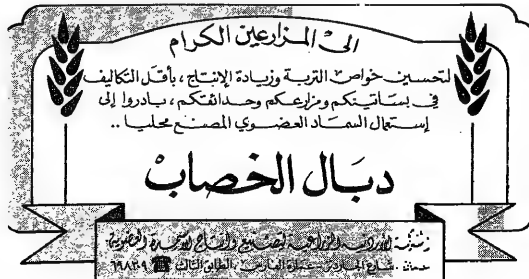 الى المزارعين الكرام
لتحسين خواص التربة وزيادة الإنتاج، بأقل التكاليف
في بساتينكم ومزارعكم وحدائقكم، بادروا إلى
إستعمال السماد العضوي المصنع محليا ..
دبال الخصاب
الزراعية لتصنيع وانتاج الأسمدة العضوية
شارع الفارس الطابق الثالث ☎ ٦٩٨٣٠٩